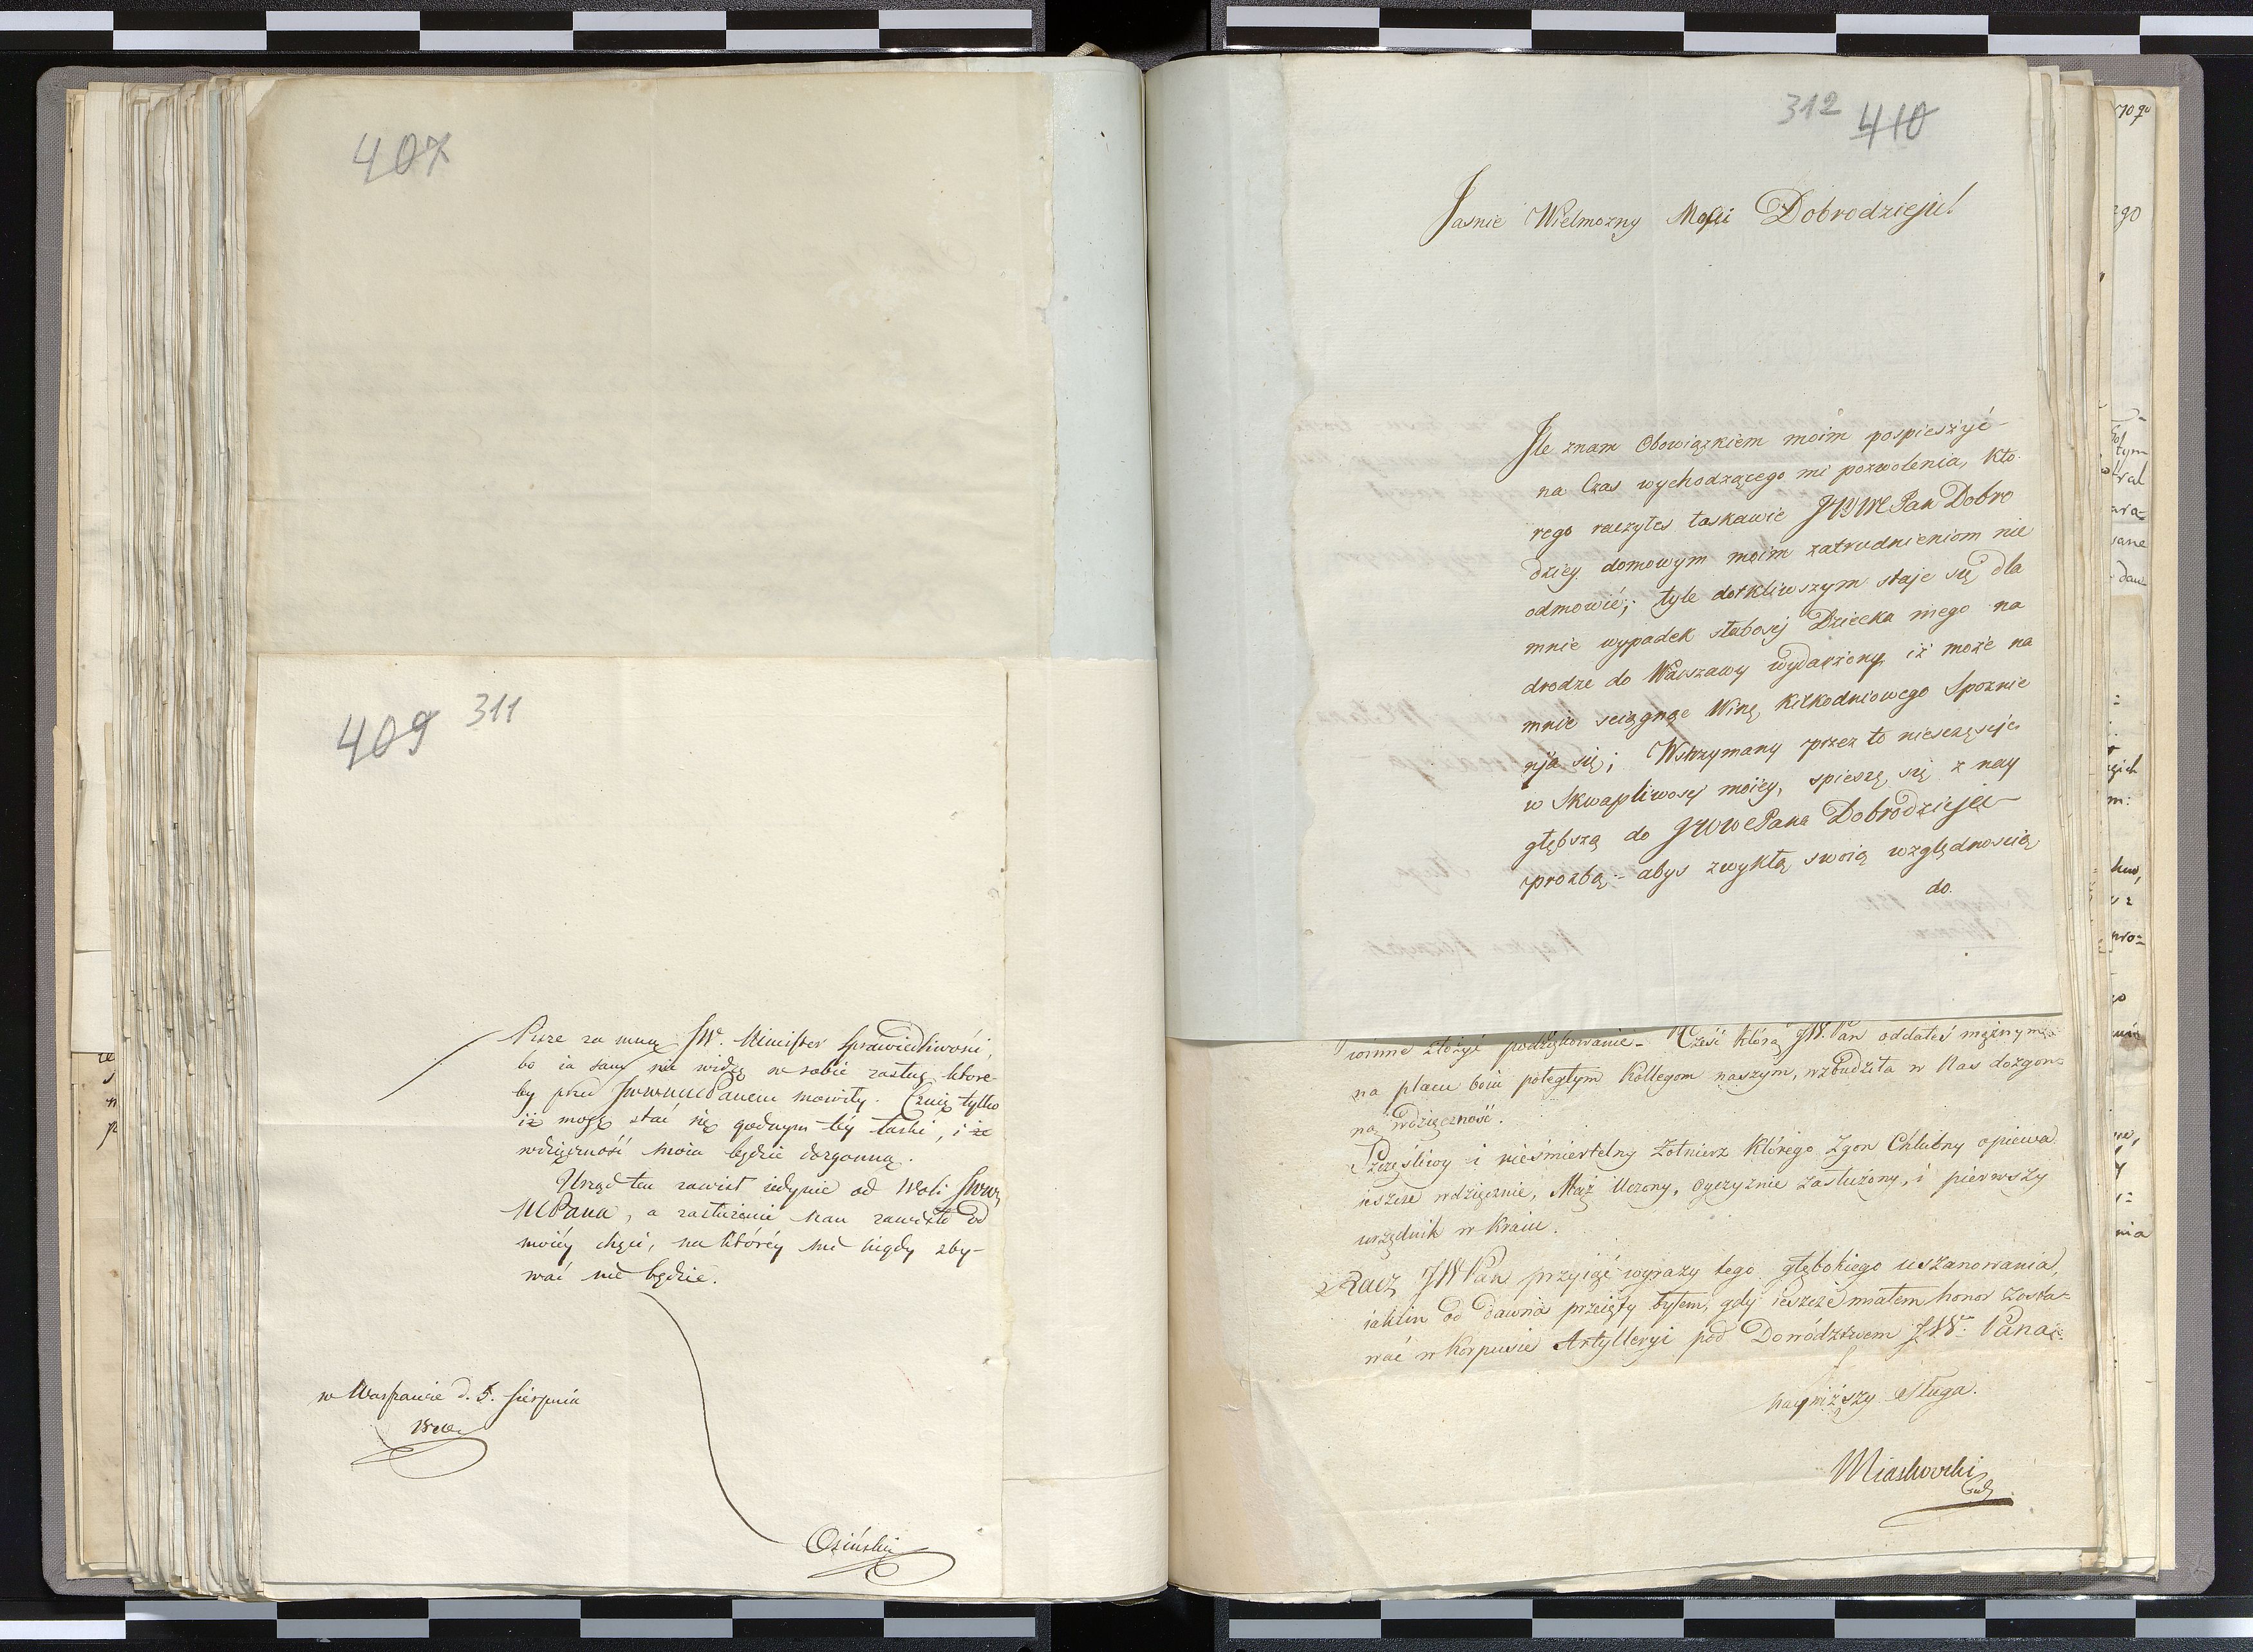 407
409 311
Pisze za mną JW. Minister Sprawiedliwości,
bo ia sam nie widzę w sobie zasług, które-
by przed JWWMPanem mowiły. Czuię tylko
iż mogę stać się godnym téy łaski, i że
wdzięczność moia będzie dozgonną.
Urząd ten zawisł iedynie od Woli JWW
MPana, a zasłużenie nań zawisło od
moiéy chęci, na któréy mi nigdy zby-
wać nie będzie.
w Warszawie d. 5. Sierpnia
Osiński
312 410
Jasnie Wielmozny Mości Dobrodzieju!
Ile znam Obowiązkiem moim pospieszyć
na Czas wychodzącego mi pozwolenia, kto-
rego raczyłes łaskawie JWWPan Dobro
dziey domowym moim zatrudnieniom nie
odmowić; tyle dotkliwszym staje się dla
mnie wypadek słabosci Dziecka mego na
drodze do Warszawy wydarzony, iż może na
mnie sciągnąc Winę kilkodniowego Spoznie
nja się; Wstrzymany przez to niesczęscje
w Skwapliwosci moiey, spieszę się z nay
głębszą do JWWPana Dobrodzieja
prozbą - abys zwykłą swoią względnoscią
do
winne złożyć podziękowanie - Cześć którą JW. Pan oddałeś mężnym
na placu boiu poległym Kollegom naszym, wzbudziła w Nas dozgon-
ną wdzięczność.
Szczęśliwy i nieśmiertelny Żołnierz którego Zgon Chlubny opiewa
ieszcze wdzięcznie, Mąż Uczony, Oyczyznie Zasłużony, i pierwszy
urzędnik w Kraiu.
Racz JWPan przyiąć wyrazy tego głębokiego uszanowania,
iakiem od dawna przeięty byłem, gdy ieszcze miałem honor zosta-
wać w Korpusie Artylleryi pod Dowództwem JW. Pana
nayniższy Sługa.
Miaskowski